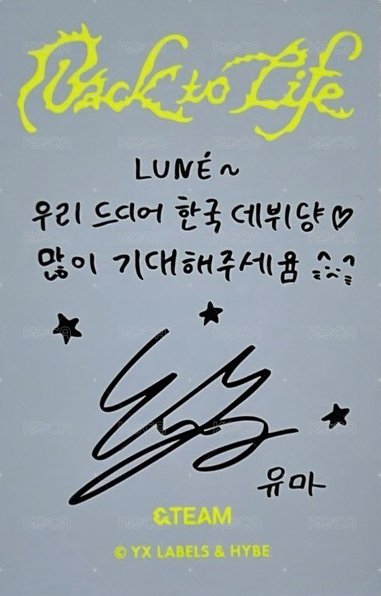 Back to Life
LUNÉ~
우리 드디어 한국 데뷔댱♡
많이 기대해주세욤
유마
&TEAM
© YX LABELS & HYBE